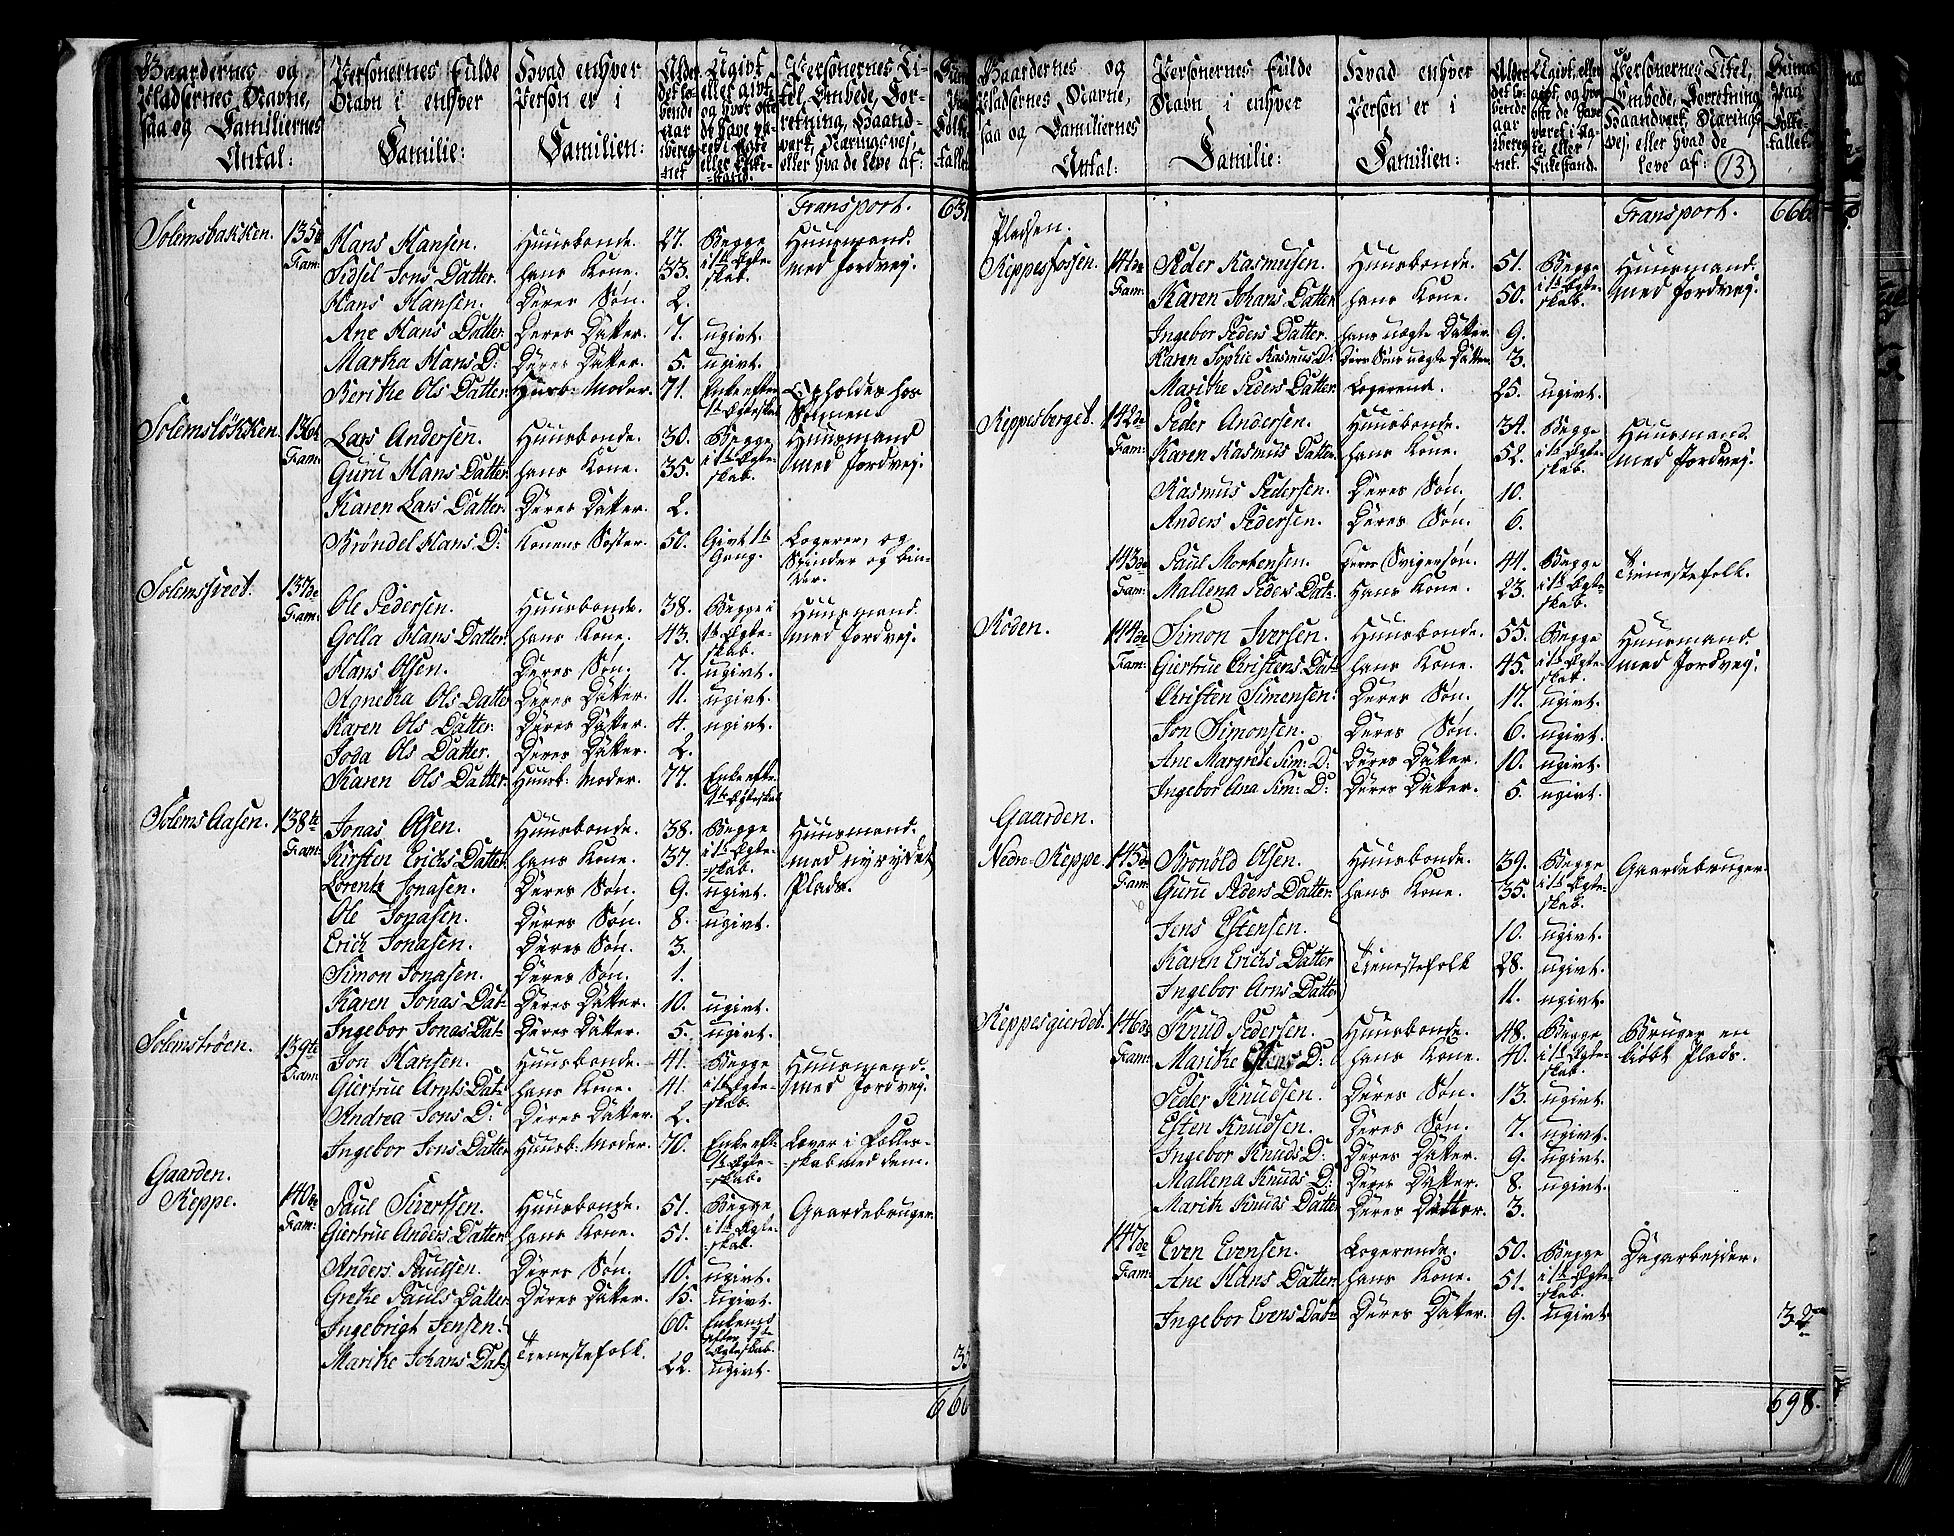 Gaardernes og Pladsernes Navne, saa og Familiernes Antal:
Personernes fulde Navn i enhver Familie:
Hvad enhver Person er i Familien:
Alder det løbende Aar iberegnet
Ugivt eller givt, og hvor ofte de have været i Ægte eller Enkestand:
Personernes Titel, Embede, Forretning, Haandverk, Næringsvej eller hvad de leve af:
Transport. 631
Solemsbakken. 135te Fam: Hans Hansen. Huusbonde. 27. Begge i 1te Ægteskab. Huusmand med Jordvej.
Sidsel Jons Datter. hans Kone. 33.
Hans Hansen. Deres Søn. 2.
Ane Hans Datter. Deres Datter. 7. ugivt.
Martha Hans D: Deres Datter. 5. ugivt.
Berithe Ols Datter. Huusb: Moder. 71. Enke efter 1te Ægteskab Opholdes hos Sønnen
Solemsløkken. 136te Fam: Lars Andersen. Huusbonde. 30. Begge i 1te Ægteskab. Huusmand med Jordvej.
Guru Hans Datter. hans Kone. 35.
Karen Lars Datter. Deres Datter. 2.
Brøndel Hans D: Konens Søster. 50. Givt 1te Gang. Logerer, og Spinder og binder.
Solemshveet. 137de Fam: Ole Pedersen. Huusbonde. 38. Begge i 1te Ægteskab. Huusmand med Jordvej.
Golla Hans Datter. hans Kone. 43.
Hans Olsen. Deres Søn. 7. ugivt.
Agnetha Ols Datter Deres Datter. 11. ugivt.
Karen Ols Datter. Deres Datter. 4. ugivt.
Joda Ols Datter. Deres Datter. 2.
Karen Ols Datter. Huusb: Moder. 77. Enke efter 1te Ægteskab
Solems Aasen. 138te Fam: Jonas Olsen. Huusbonde. 38. Begge i 1te Ægteskab. Huusmand med nyrydet Plads.
Kirsten Erichs Datter. hans Kone. 37.
Lorentz Jonasen. Deres Søn. 9. ugivt.
Ole Jonasen. Deres Søn. 8. ugivt.
Erich Jonasen. Deres Søn. 3.
Simon Jonasen. Deres Søn. 1.
Karen Jonas Dat: Deres Datter. 10. ugivt.
Ingebor Jonas Dat: Deres Datter. 5. ugivt.
Solemstrøen. 139te Fam: Jon Hansen. Huusbonde. 41. Begge i 1te Ægteskab. Huusmand med Jordvej.
Giertrue Arnts Dat: hans Kone. 41.
Andrea Jons D: Deres Datter. 2.
Ingebor Jens Datter Huusb: Moder. 70. Enke eft: 1te Ægteskab. Lever i Fællesskab med dem.
Gaarden.
Reppe. 140de Fam: Paul Sivertsen. Huusbonde. 51. Begge i 1te Ægteskab. Gaardebruger.
Giertrue Anders Datter. hans Kone. 51.
Anders Paulsen. Deres Søn. 10. ugivt.
Grethe Pauls Datter. Deres Datter. 15. ugivt.
Ingebrigt Jensen. 60. Enkemd efter 1te Ægteskab.
Marithe Johans Dat: Tienestefolk. 22. ugivt.
35
666
Gaardernes og Pladsernes Navne, saa og Familiernes Antal:
Personernes fulde Navn i enhver Familie:
Hvad enhver Person er i Familien:
Alder det løbende Aar iberegnet.
Ugivt eller givt, og hvor ofte de have været i Ægte, eller Enkestand.
Personernes Titel, Embede, Forretning, Haandverk, Næringsvej, eller hvad de leve af: 13
Transport. 666
Pladsen.
Reppesfossen. 141de Fam: Peder Rasmusen. Huusbonde. 51. Begge i 1te Ægteskab. Huusmand med Jordvej.
Karen Johans Datter hans Kone. 50.
Ingebor Peders Datter. hans uægte Datter. 9.
Karen Sophie Rasmus D: Deres Søns uægte Datter. 3.
Marithe Peders Datter. Logerende. 25. ugivt.
Reppesberget. 142de Fam: Peder Andersen. Huusbonde. 34. Begge i 1te Ægteskab. Huusmand med Jordvej.
Karen Rasmus Datter. hans Kone. 52.
Rasmus Pedersen. Deres Søn. 10.
Anders Pedersen. Deres Søn. 6.
143de Fam: Paul Mortensen. deres Svigersøn. 44. Begge i 1te Ægteskab. Tienestefolk.
Mallena Peders Dat: Hans Kone. 23.
Roden. 144de Fam: Simon Iversen. Huusbonde. 55. Begge i 1te Ægteskab. Huusmand med Jordvej.
Giertrue Christens Dat: hans Kone. 45.
Christen Simensen. Deres Søn. 17. ugivt.
Jon Simonsen. Deres Søn. 6. ugivt.
Ane Margrete Sim: D: Deres Datter. 10. ugivt.
Ingebor Ana Sim: D: Deres Datter. 5. ugivt.
Gaarden.
Nedre-Reppe. 145de Fam: Bronold Olsen. Huusbonde. 39. Begge i 1te Ægteskab. Gaardebruger.
Guru Peders Datter. hans Kone. 35.
Jens Estensen. 10. ugivt.
Karen Erichs Datter Tienestefolk 28. ugivt.
Ingebor Arns Datter 11. ugivt.
Reppesgierdet. 146de Fam: Knud Pedersen. Huusbonde. 48. Begge i 1te Ægteskab. Bruger en kiøbt Plads.
Marithe Estens D: hans Kone. 40.
Peder Knudsen. Deres Søn. 13. ugivt.
Esten Knudsen. Deres Søn. 7. ugivt.
Ingebor Knuds D: Deres Datter. 9. ugivt.
Mallena Knuds D: Deres Datter. 8. ugivt.
Marith Knuds Datter Deres Datter. 3.
147de Fam: Even Evensen. Logerende. 50. Begge i 1te Ægteskab. Dagarbejder.
Ane Hans Datter. hans Kone. 51.
Ingebor Evens Dat: Deres Datter. 9. ugivt.
32
698.